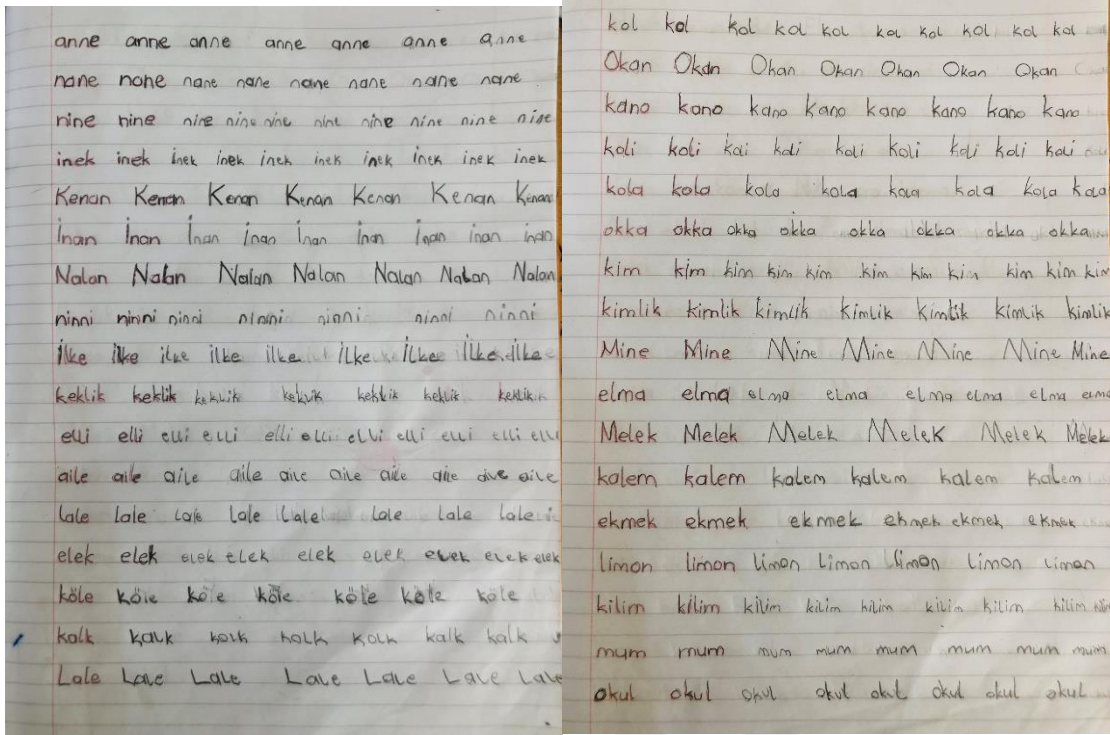 anne anne anne anne anne anne anne
nane nane nane nane nane nane nane nane
nine nine nine nine nine nine nine nine nine nine
inek inek inek inek inek inek inek inek inek inek
Kenan Kenan Kenan Kenan Kenan Kenan Kenan
İnan İnan İnan inan İnan İnan İnan inan inan
Nalan Nalan Nalan Nalan Nalan Nalan Nalan
ninni ninni ninni ninni ninni ninni ninni
İlke ilke ilke ilke ilke İlke İlke İlke İlke
keklik keklik keklik keklik keklik keklik keklik
elli elli elli elli elli elli elli elli elli elli elli
aile aile aile aile aile aile aile aile aile aile
Lale Lale Lale Lale Lale Lale Lale Lale
elek elek elek elek elek elek elek elek elek
köle köle köle köle köle köle köle
kalk kalk kalk kalk kalk kalk kalk
Lale Lale Lale Lale Lale Lale Lale
kol kol kol kol kol kol kol kol kol kol
Okan Okan Okan Okan Okan Okan Okan
kano kano kano kano kano kano kano kano
koli koli koli koli koli koli koli koli koli
kola kola kola kola kola kola kola kola
okka okka okka okka okka okka okka okka
kim kim kim kim kim kim kim kim kim kim kim
kimlik kimlik kimlik kimlik kimlik kimlik kimlik
Mine Mine Mine Mine Mine Mine Mine
elma elma elma elma elma elma elma elma
Melek Melek Melek Melek Melek Melek
kalem kalem kalem kalem kalem kalem
ekmek ekmek ekmek ekmek ekmek ekmek
limon limon limon limon limon limon limon
kilim kilim kilim kilim kilim kilim kilim kilim kilim
mum mum mum mum mum mum mum mum
okul okul okul okul okul okul okul okul